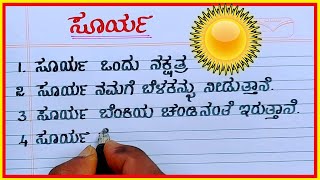 ಸೂರ್ಯ
1. ಸೂರ್ಯ ಒಂದು ನಕ್ಷತ್ರ
2 ಸೂರ್ಯ ನಮಗೆ ಬೆಳಕನ್ನು ನೀಡುತ್ತಾನೆ.
3 ಸೂರ್ಯ ಬೆಂಕಿಯ ಚಂಡಿನಂತೆ ಇರುತ್ತಾನೆ.
4 ಸೂರ್ಯ